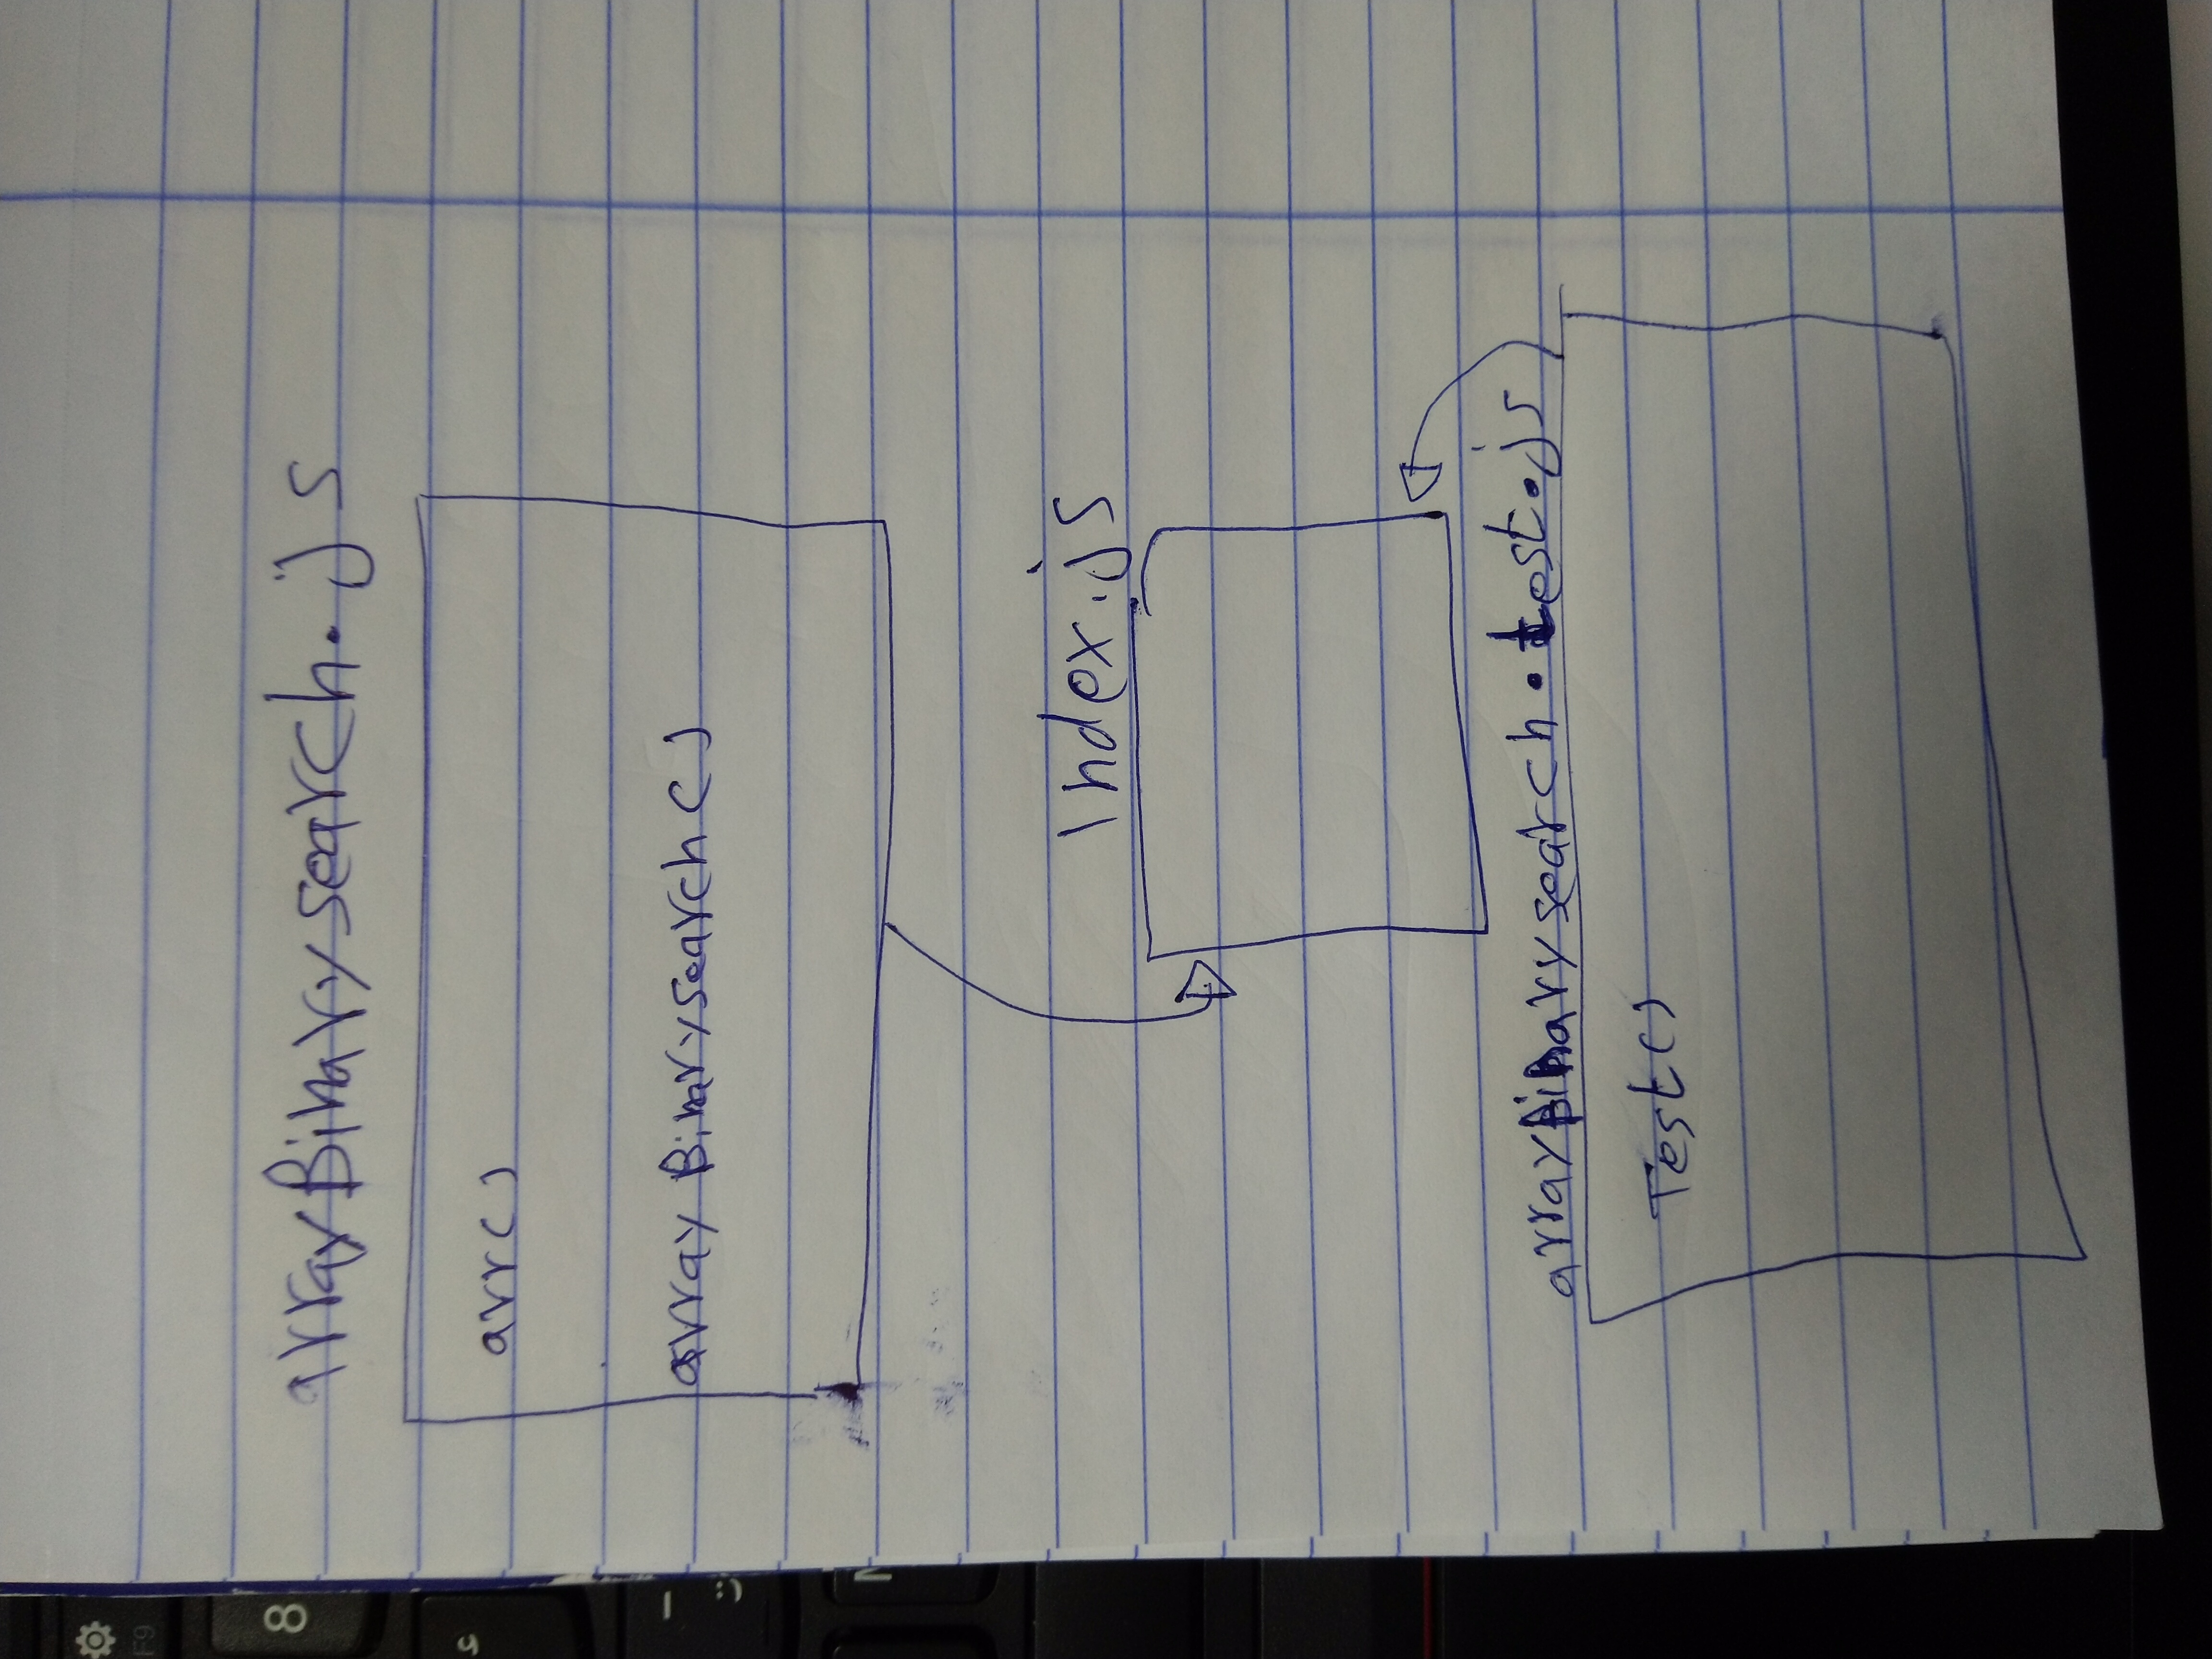 arrayBinarysearch.js
arr()
array Binarysearch()
Index.js
arrayBinarysearch.test.js
Test()
F9
8
9